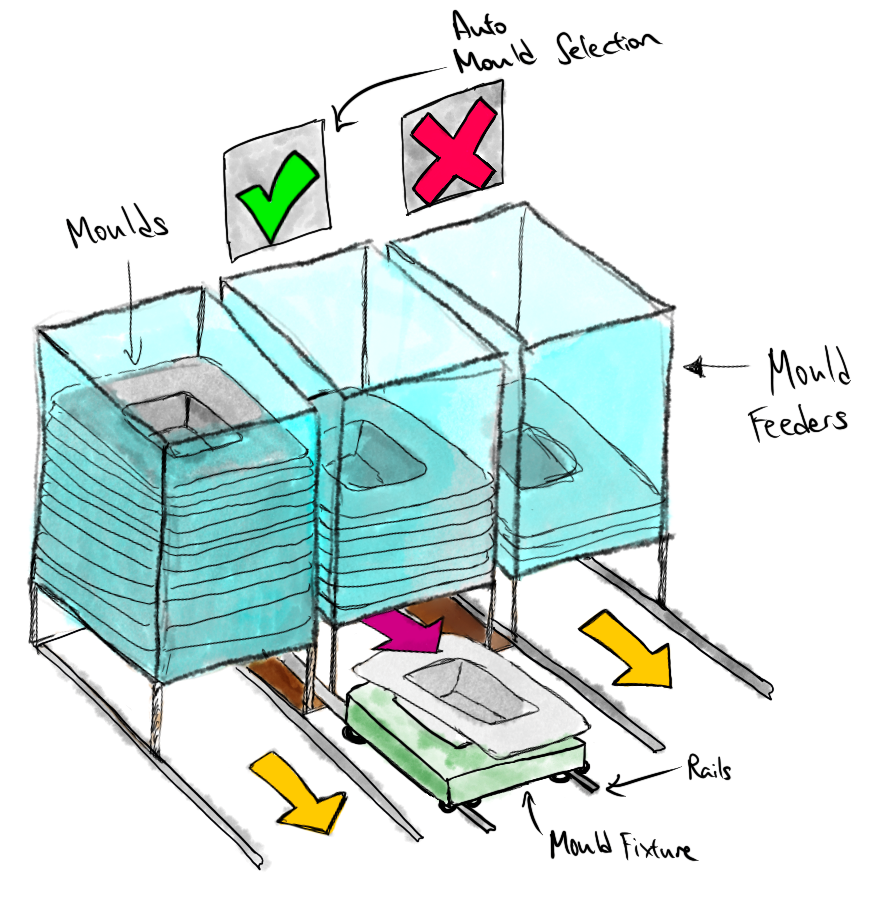 Auto
Mould Selection
Moulds
Mould
Feeders
Rails
Mould Fixture